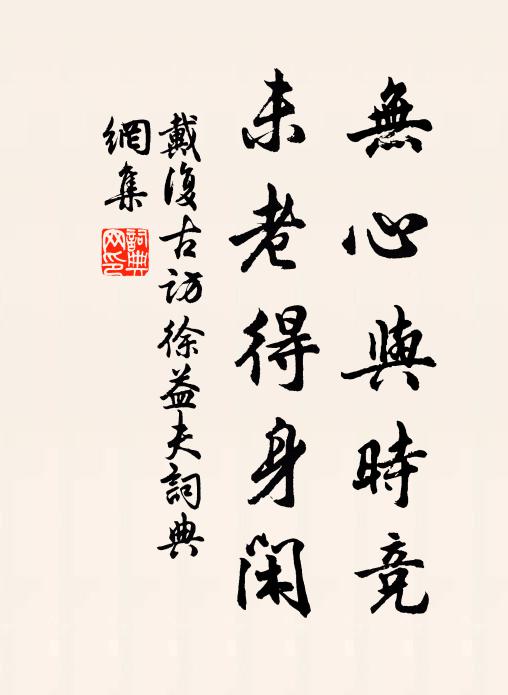 無心與時竞
未老得身闲
戴復古訪徐益夫詞典
網集
詞典
网印